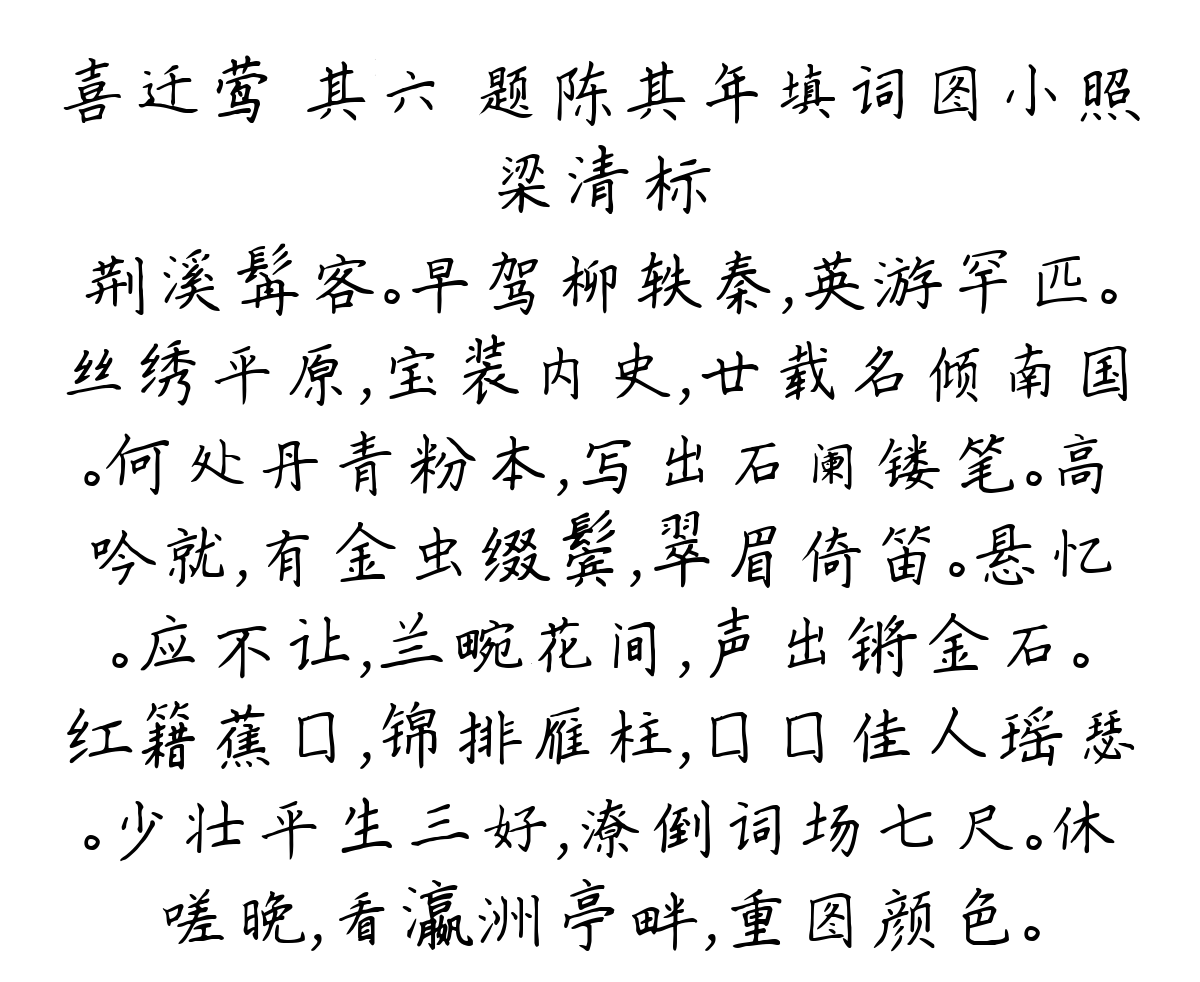 喜迁莺 其六 题陈其年填词图小照
梁清标
荆溪髯客。早驾柳轶秦,英游罕匹。
丝绣平原,宝装内史,廿载名倾南国
。何处丹青粉本,写出石阑镂笔。高
吟就,有金虫缀鬓,翠眉倚笛。悬忆
。应不让,兰畹花间,声出锵金石。
红籍蕉口,锦排雁柱,口口佳人瑶瑟
。少壮平生三好,潦倒词场七尺。休
嗟晚,看瀛洲亭畔,重图颜色。